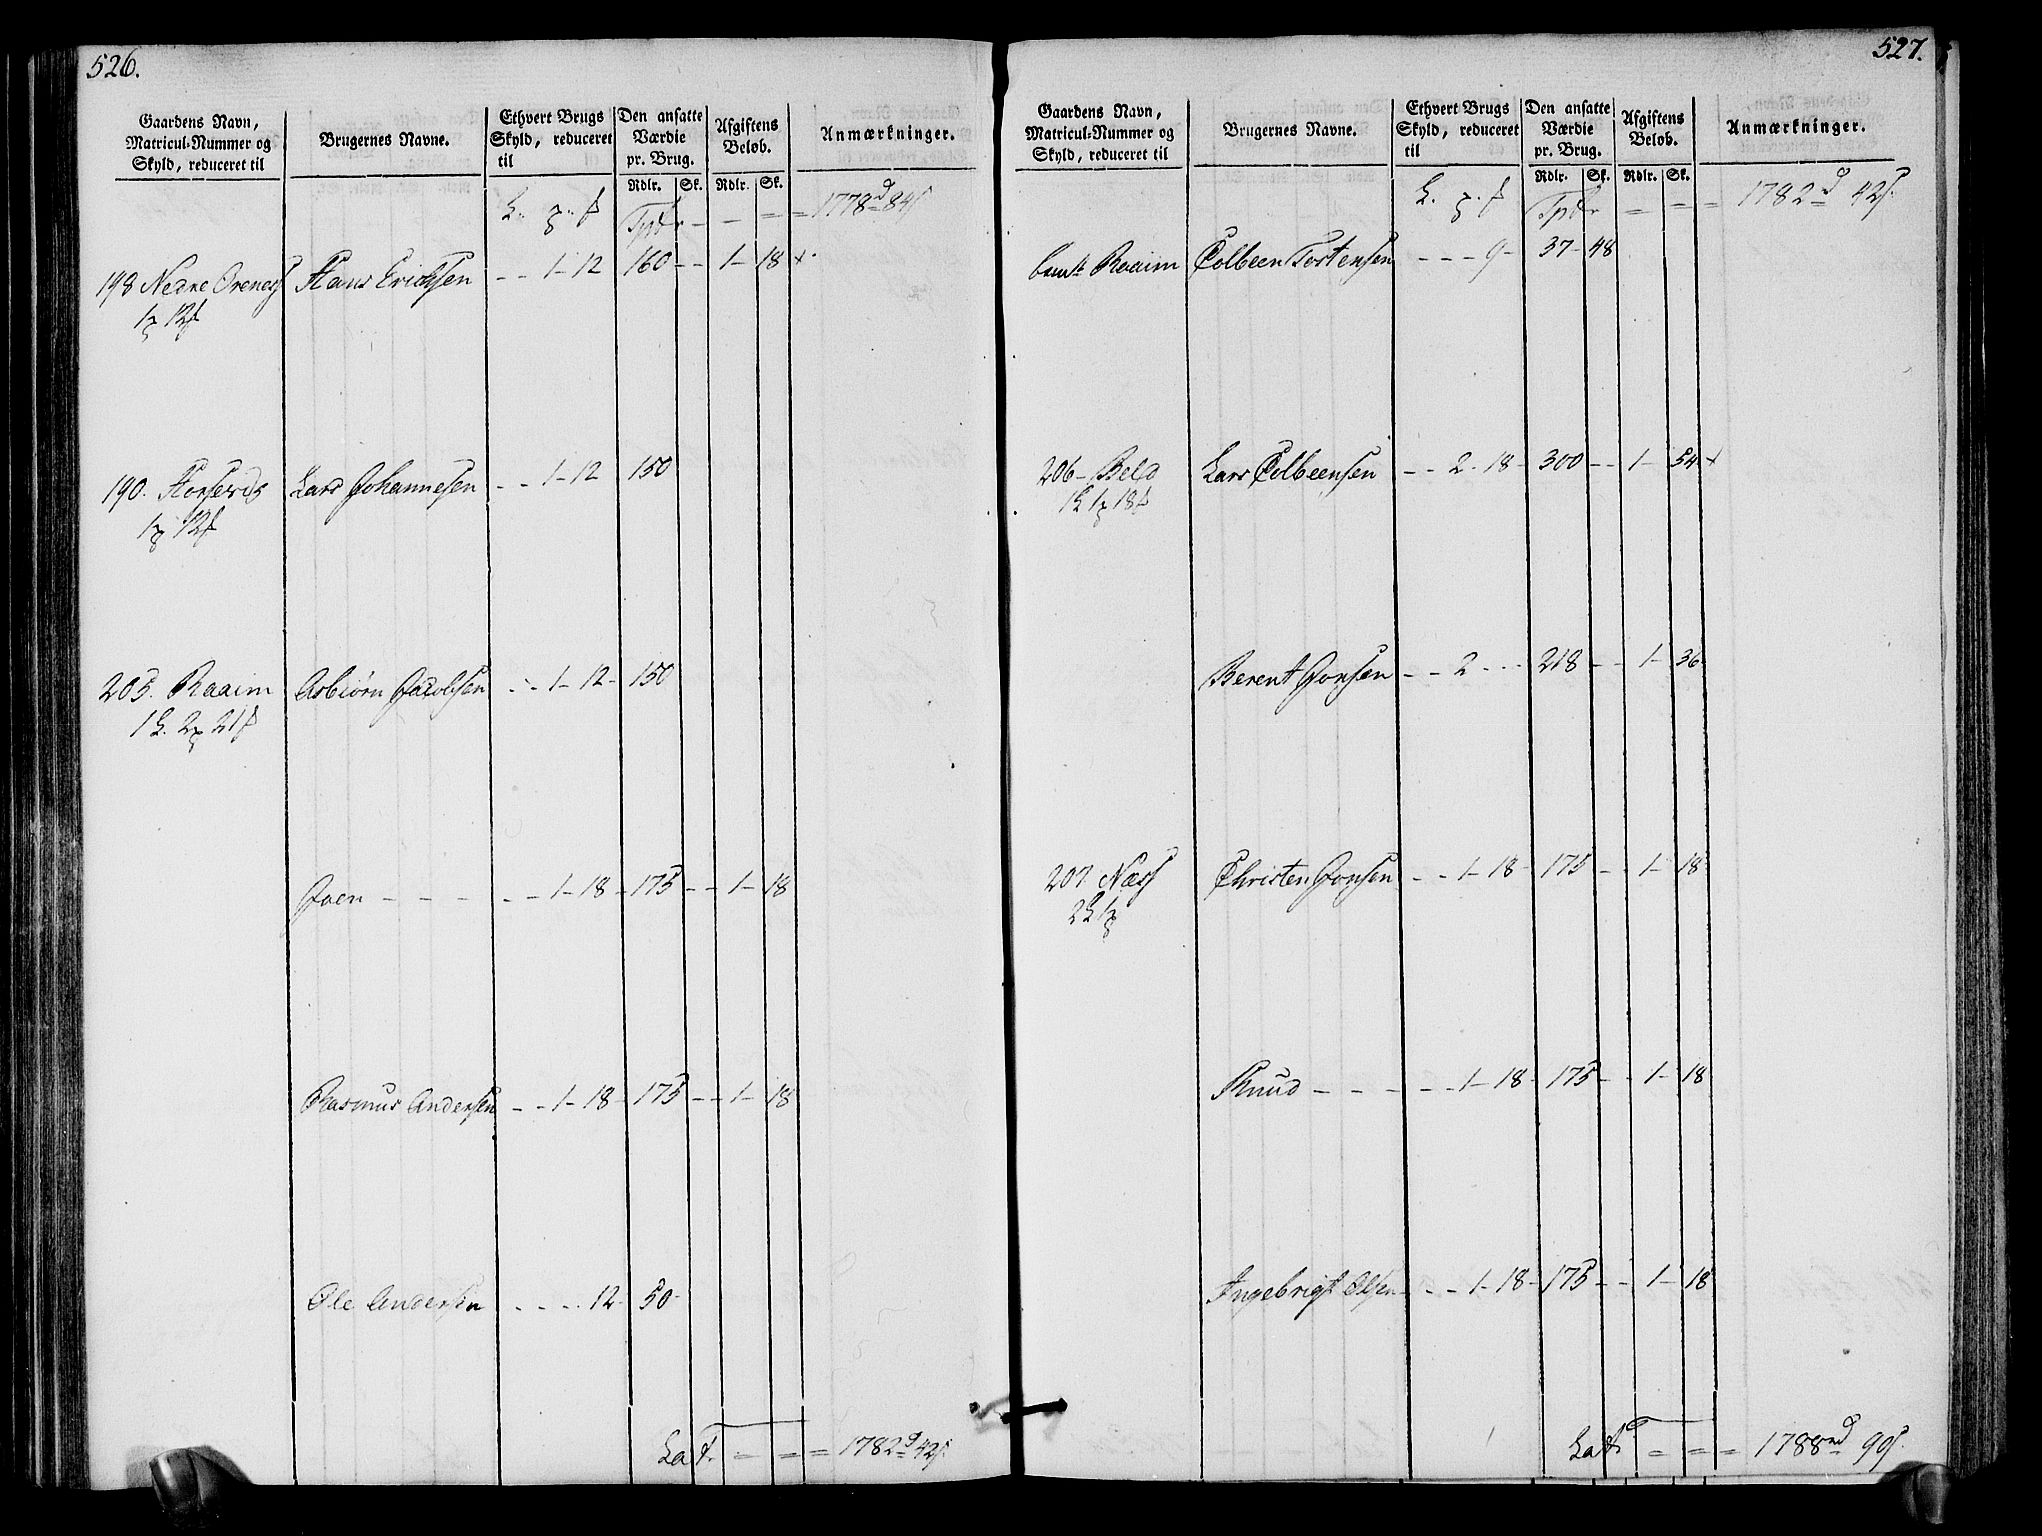 526.
Gaardens Navn, Matricul-Nummer og Skyld, reduceret til
Brugernes Navne.
Ethvert Brugs Skyld, reduceret til
Den ansatte Værdie pr. Brug.
Afgiftens Beløb.
Anmærkninger.
Rdlr. Sk. Rdlr. Sk.
Tpr - - = = 1778 d 84 s
198 Nedre Orenes Hans Erichsen - - 1 - 12 160 - - 1 - 18 x
1 p 12 f
190. Horsevig Lars Johannesen - - 1 - 12 150
1 p 12 f
205. Raaim Asbiørn Jacobsen - - 1 - 12 - 150
1 L. 2 p 21 f
Joen - - - - - 1 - 18 - 175 - - 1 - 18
Rasmus Andersen - - 1 - 18 - 175 - - 1 - 18
Ole Andersen - - - - 12 - 50 -
Lat. = = = 1782 d 42 s
527.
Gaardens Navn, Matricul-Nummer og Skyld, reduceret til
Brugernes Navne.
Ethvert Brugs Skyld, reduceret til
Den ansatte Værdie pr. Brug.
Afgiftens Beløb.
Anmærkninger.
Rdlr. Sk. Rdlr. Sk.
L. p. f Tpr = = = 1782 d 42 s
Raaim Colbeen Tostensen - - - 9 - 37 - 48
206 - Beld Lars Colbeensen - - 2 - 18 - 300 - - 1 - 54 x
1 L 1 p 18 f
Berent Jonsen - - 2 - - - 218 - - 1 - 36
207 Næss Christen Jonsen - - 1 - 18 - 175 - - 1 - 18
2 L 1 p
Knud - - - - - 1 - 18 - 175 - - 1 - 18
Ingebrigt Olsen - - 1 - 18 - 175 - - 1 - 18
Lat. = = = 1788 d 90 s